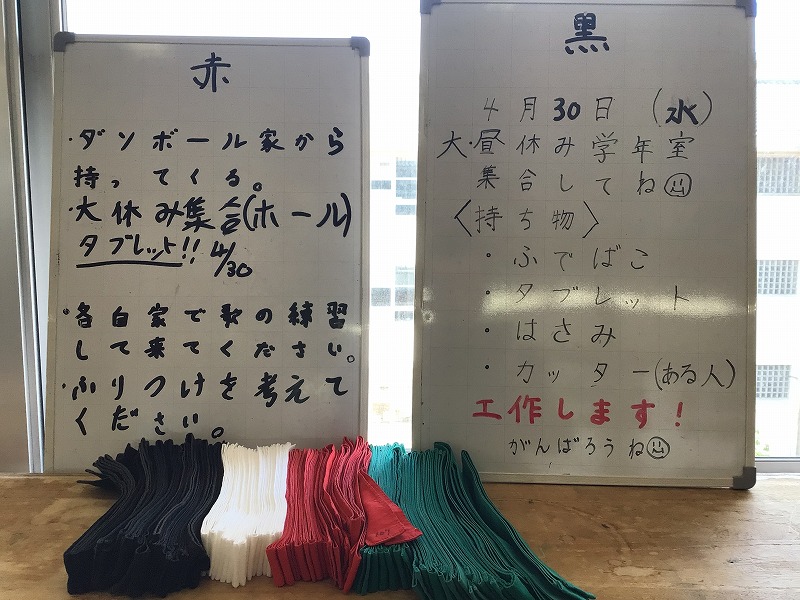 赤
・ダンボール家から
持ってくる。
・大休み集合(ホール)
タブレット!! 4/30
・各自家で歌の練習
して来てください。
・ふりつけを考えて
ください。
黒
4月30日(水)
大・昼休み学年室
集合してね
〈持ち物〉
・ふでばこ
・タブレット
・はさみ
・カッター(ある人)
工作します!
がんばろうね